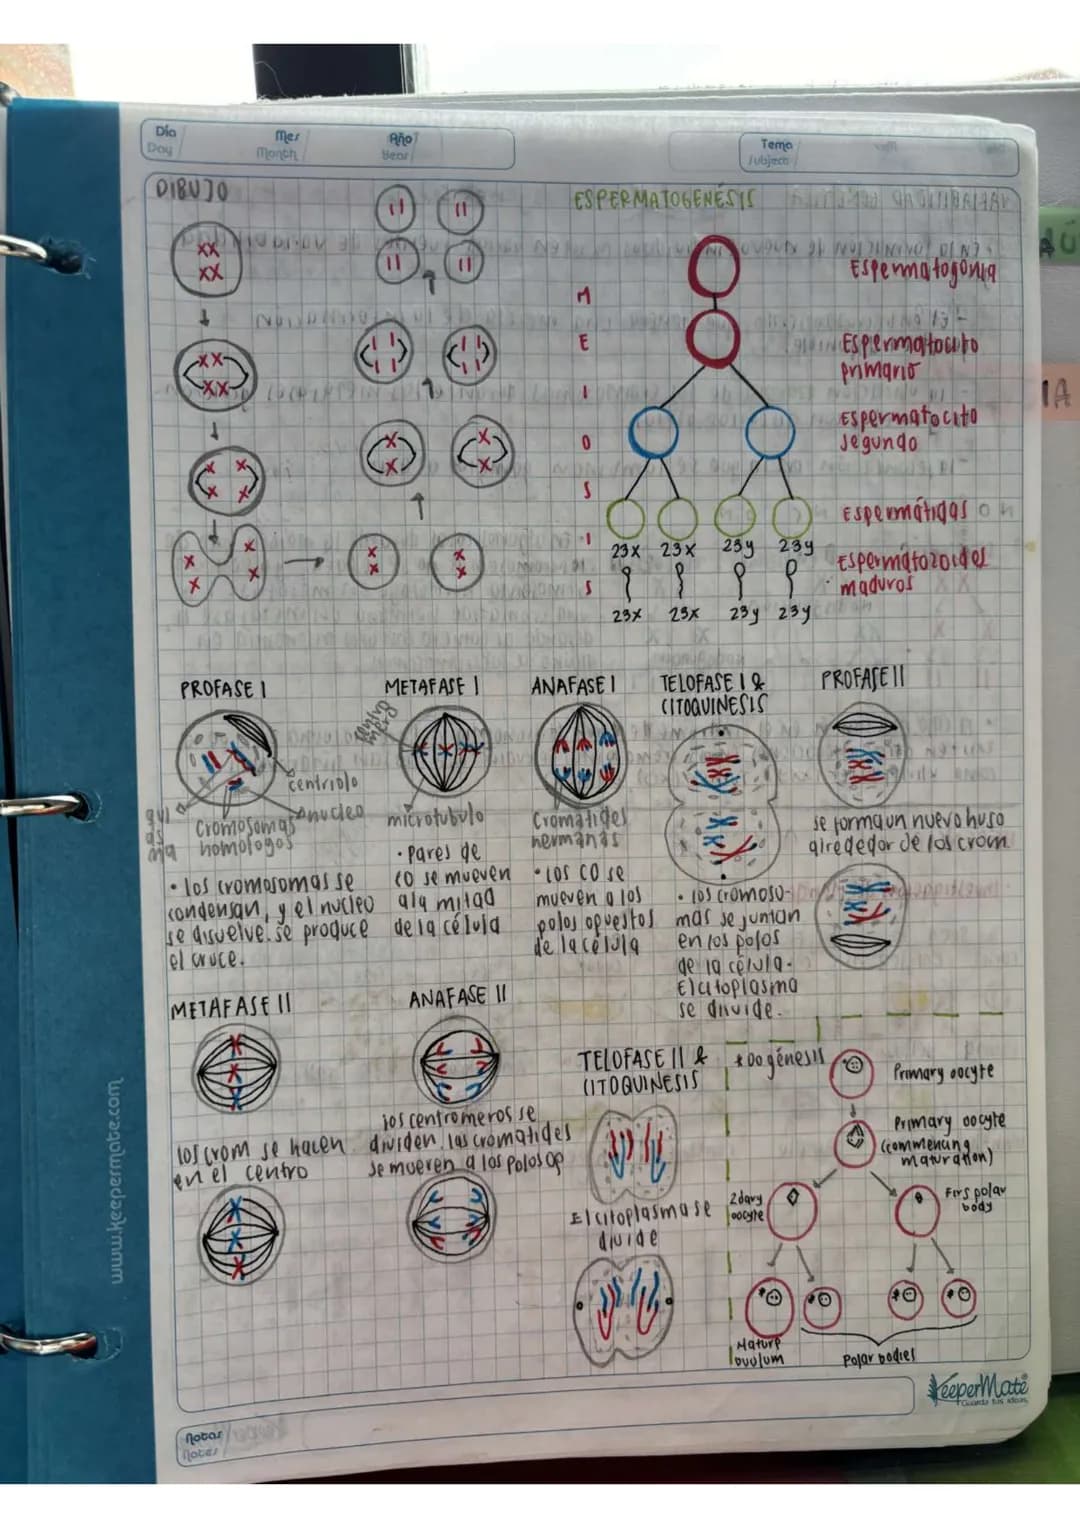 Día
Day
Mes
Month
Año
Year
Tema
Subject
DIBUJO
ESPERMATOGENÉSIS
M
E
I
O
S
I
S
Espermatogonia
Espermatocito
primario
Espermatocito
segundo
Espermátidas
23x 23x 23y 23y
Espermatozoides
maduros
23x 23x 23y 23y
PROFASE I
centriolo
nucleo
quiasma
Cromosomas
homologos
• los cromosomas se
condensan, y el nucleo
se disuelve. se produce
el cruce.
METAFASE I
microtubulo
• Pares de
co se mueven
a la mitad
de la célula
ANAFASE I
Cromatides
hermanas
• los co se
mueven a los
polos opuestos
de la celula
TELOFASE I &
CITOQUINESIS
• los cromoso-
mas se juntan
en los polos
de la célula.
El citoplasma
se divide.
PROFASE II
se forma un nuevo huso
alrededor de los crom
METAFASE II
los crom se hacen
en el centro
ANAFASE II
los centromeros se
dividen, las cromatides
se mueven a los polos op
TELOFASE II &
CITOQUINESIS
El citoplasma se
divide
* Oogénesis
Primary oocyte
Primary oocyte
(commencing
maturation)
2dary
oocyte
Firs polar
body
Mature
ovulum
Polar bodies
www.keepermate.com
KeeperMate
Guarda tus ideas
Notas
Notes